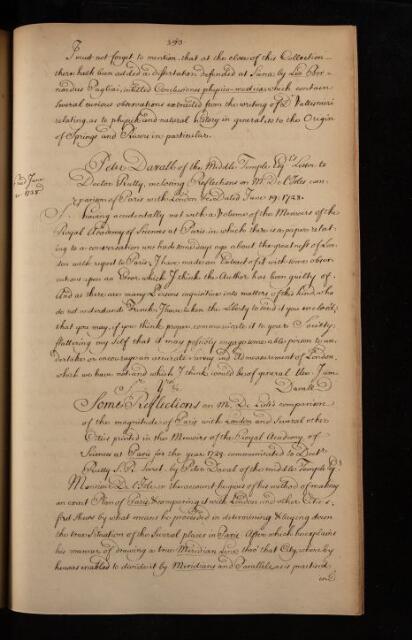 I must not forget to mention that at the close of this Collection
there hath been added a dissertation defended at Siena by
Pagliai, intitled Conclusiones physico-medicae which contain
several curious observations extracted from the writing of Vallisnieri
relating as to physick and natural history in general, so to the Origin
of Springs and Rivers in particular.
Peter Davall of the Middle Temple Esqrs Letter to
Doctor Rutty, inclosing Reflections on Mr. de l'Isles com-
parison of Paris with London &c. Dated June 19. 1728.
Sr. having accidentally met with a Volume of the Memoirs of the
Royal Academy of Sciences at Paris in which there is a paper relat-
ing to a conversation we had some days ago about the greatness of Lon-
don with respect to Paris, I have made an Extract of it with some obser-
vations upon an Error which I think the Author has been guilty of.
And as there are many Persons inquisitive into matters of this kind, who
do not understand French, I have taken the Liberty to send it you enclosed,
that you may, if you think proper, communicate it to your Society;
flattering my self that it may possibly engage some able person to un-
dertake or encourage an accurate survey and admeasurement of London,
which we have not and which I think would be of general Use. I am
Sr. Yrs. &c
Davall
Some Reflections on Mr. De Lisle's comparison
of the magnitude of Paris with London and several other
Cities printed in the Memoirs of the Royal Academy of
Sciences at Paris for the year communicated to Doctr.
Rutty R. S. Secret. by Peter Daval of the middle Temple Esqr.
Monsieur De l'Isle in the account he gives of his method of making
an exact Plan of Paris & comparing it with London and other Cities,
first shews by what means he proceeded in determining & laying down
the true situation of the several places in Paris. After which he explains
his manner of drawing a true Meridian Line thro' that City, whereby
he was enabled to divide it by Meridians and Parallels as is practised
in